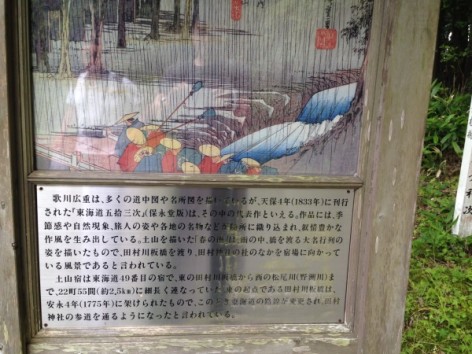 歌川広重は、多くの道中図や名所図を描いているが、天保4年(1833年)に刊行
された「東海道五拾三次」(保永堂版)は、その中の代表作といえる。作品には、季
節感や自然現象、旅人の姿や各地の名物などが随所に織り込まれ、叙情豊かな
作風を生み出している。土山を描いた「春の雨」は、雨の中、橋を渡る大名行列の
姿を描いたもので、田村川板橋を渡り、田村神社の杜のなかを宿場に向かって
いる風景であると言われている。
土山宿は東海道49番目の宿で、東の田村川板橋から西の松尾川(野洲川)ま
で、22町55間(約2.5㎞)に細長く連なっていた。東の起点である田村川板橋は、
安永4年(1775年)に架けられたもので、このとき東海道の路筋が変更され、田村
神社の参道を通るようになったと言われている。